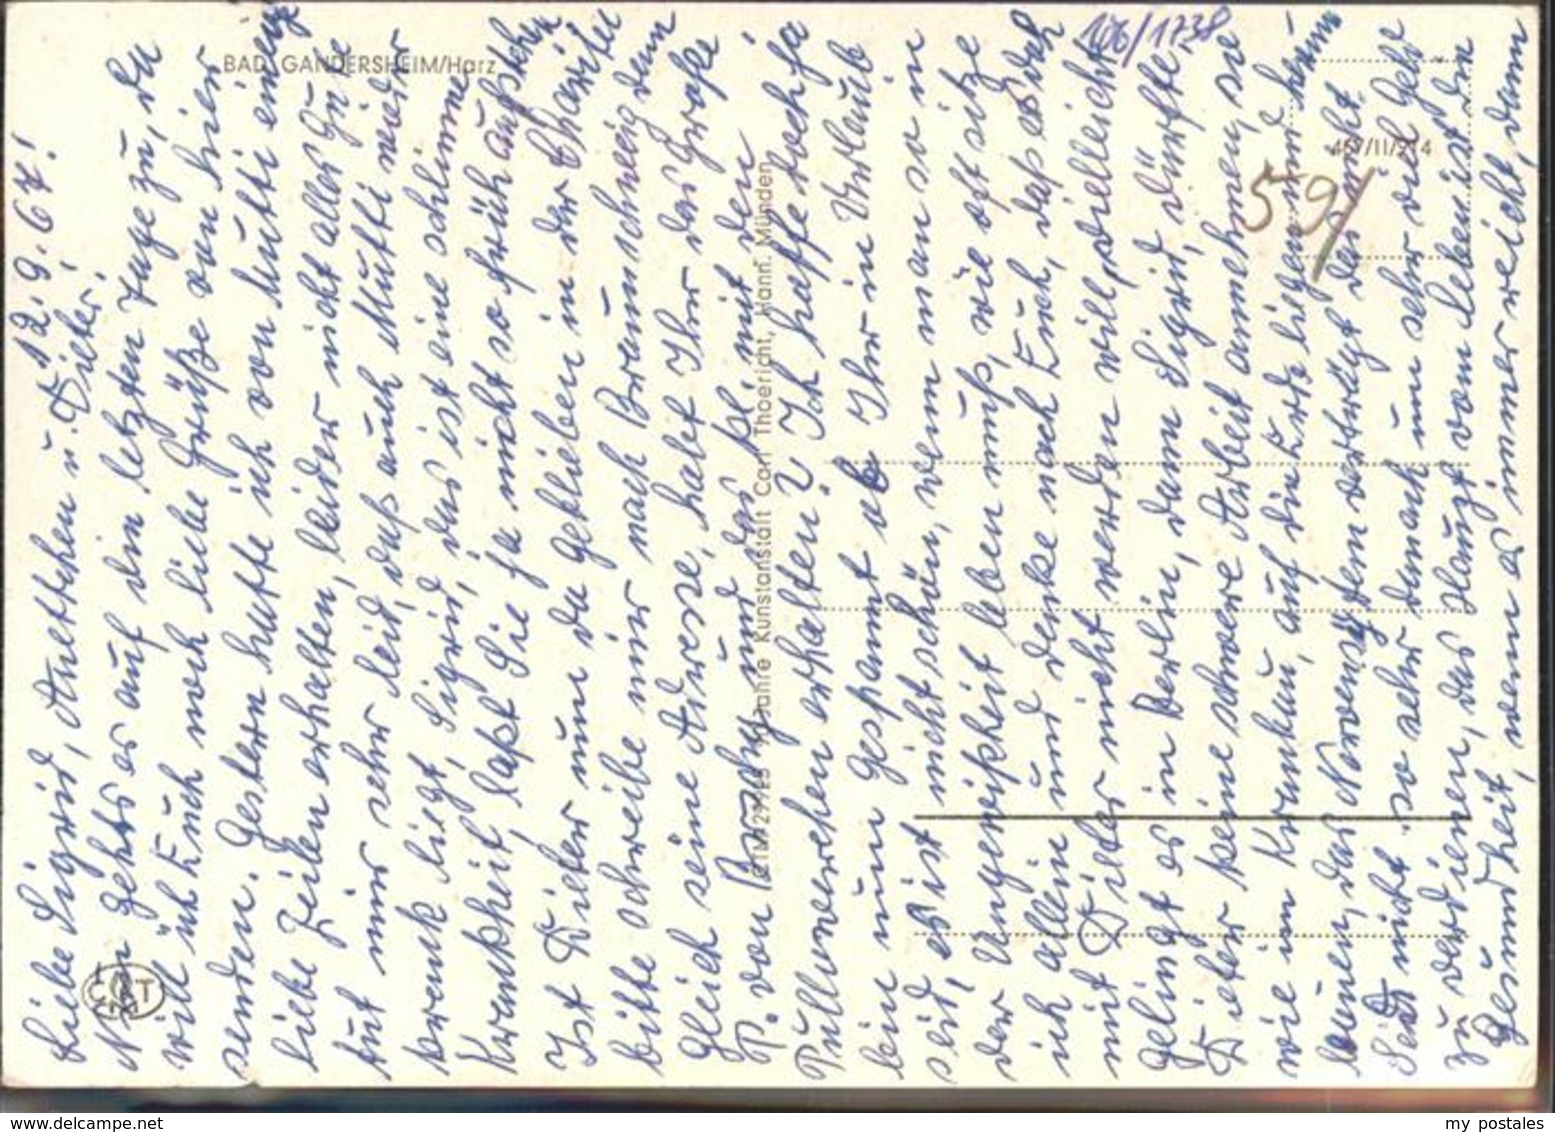 BAD GANDERSHEIM/Harz
467/II/214
106/1738
59/
C&T
Jahre Kunstanstalt Carl Thoericht, Hann. Münden
12.9.67!
Liebe Sigrid, u. Dieter!
Nun geht es auf die letzten Tage zu, da
will ich Euch noch liebe Grüße von hier
senden. Gestern hatte ich von Mutti einige
liebe Zeilen erhalten, leider nicht alles Gute
tut mir sehr leid, daß auch Mutti wieder
krank liegt, Sigrid, das ist eine schlimme
Krankheit, laßt Sie ja nicht so früh aufstehen
Ist Dieter nun da geblieben in der Charitee
bitte schreibe mir nach Braunschweig dann
gleich seine Adresse, habt Ihr das große
P. von und das kl. mit den
Pulloverchen erhalten? Ich hoffe doch ja
bin nun gespannt ob Ihr in Urlaub
seid, es ist nicht schön, wenn man so in
der Ungewißheit leben muß, wie oft sitze
ich allein und denke nach Euch, daß es doch
mit Dieter nicht werden will, vielleicht
gelingt es in Berlin, dann Sigrid, dürfte
Dieter keine schwere Arbeit annehmen, so
wie im auf die Erde liegen und
das verträgt das nicht.
Seid nicht so sehr danach um sehr viel Geld
zu verdienen, das Haupt vom Leben ist die
Gesundheit, wenn es immer reicht, dann
www.delcampe.net
my_postales